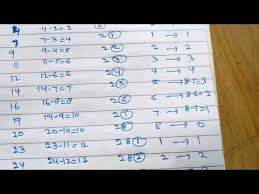 4 4-2=2 2① 1 → 1
7 7-3=4 2② 2 → 2
9 9-4=5 2③ 3 → 3
11 11-5=6 2④ 4 → 4
14-7=7 2⑤ 5 → 8-5=3
16 16-8=8 2⑥ 6 → 8-6=2
19 19-9=10 2⑦ 7 → 8-7=1
20 20-10=10 2⑧ 8 → 0
23 23-11=12 28① 1 → 1
24 24-12=12 28② 2 → 2